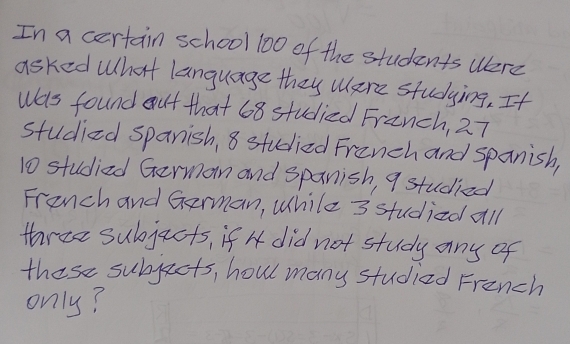 In a certain school 100 of the students were
asked what language they were studying. It
was found out that 68 studied French, 27
studied Spanish, 8 studied French and Spanish,
10 studied German and Spanish, 9 studied
French and German, while 3 studied all
three subjects, if 4 did not study any of
these subjects, how many studied French
only?